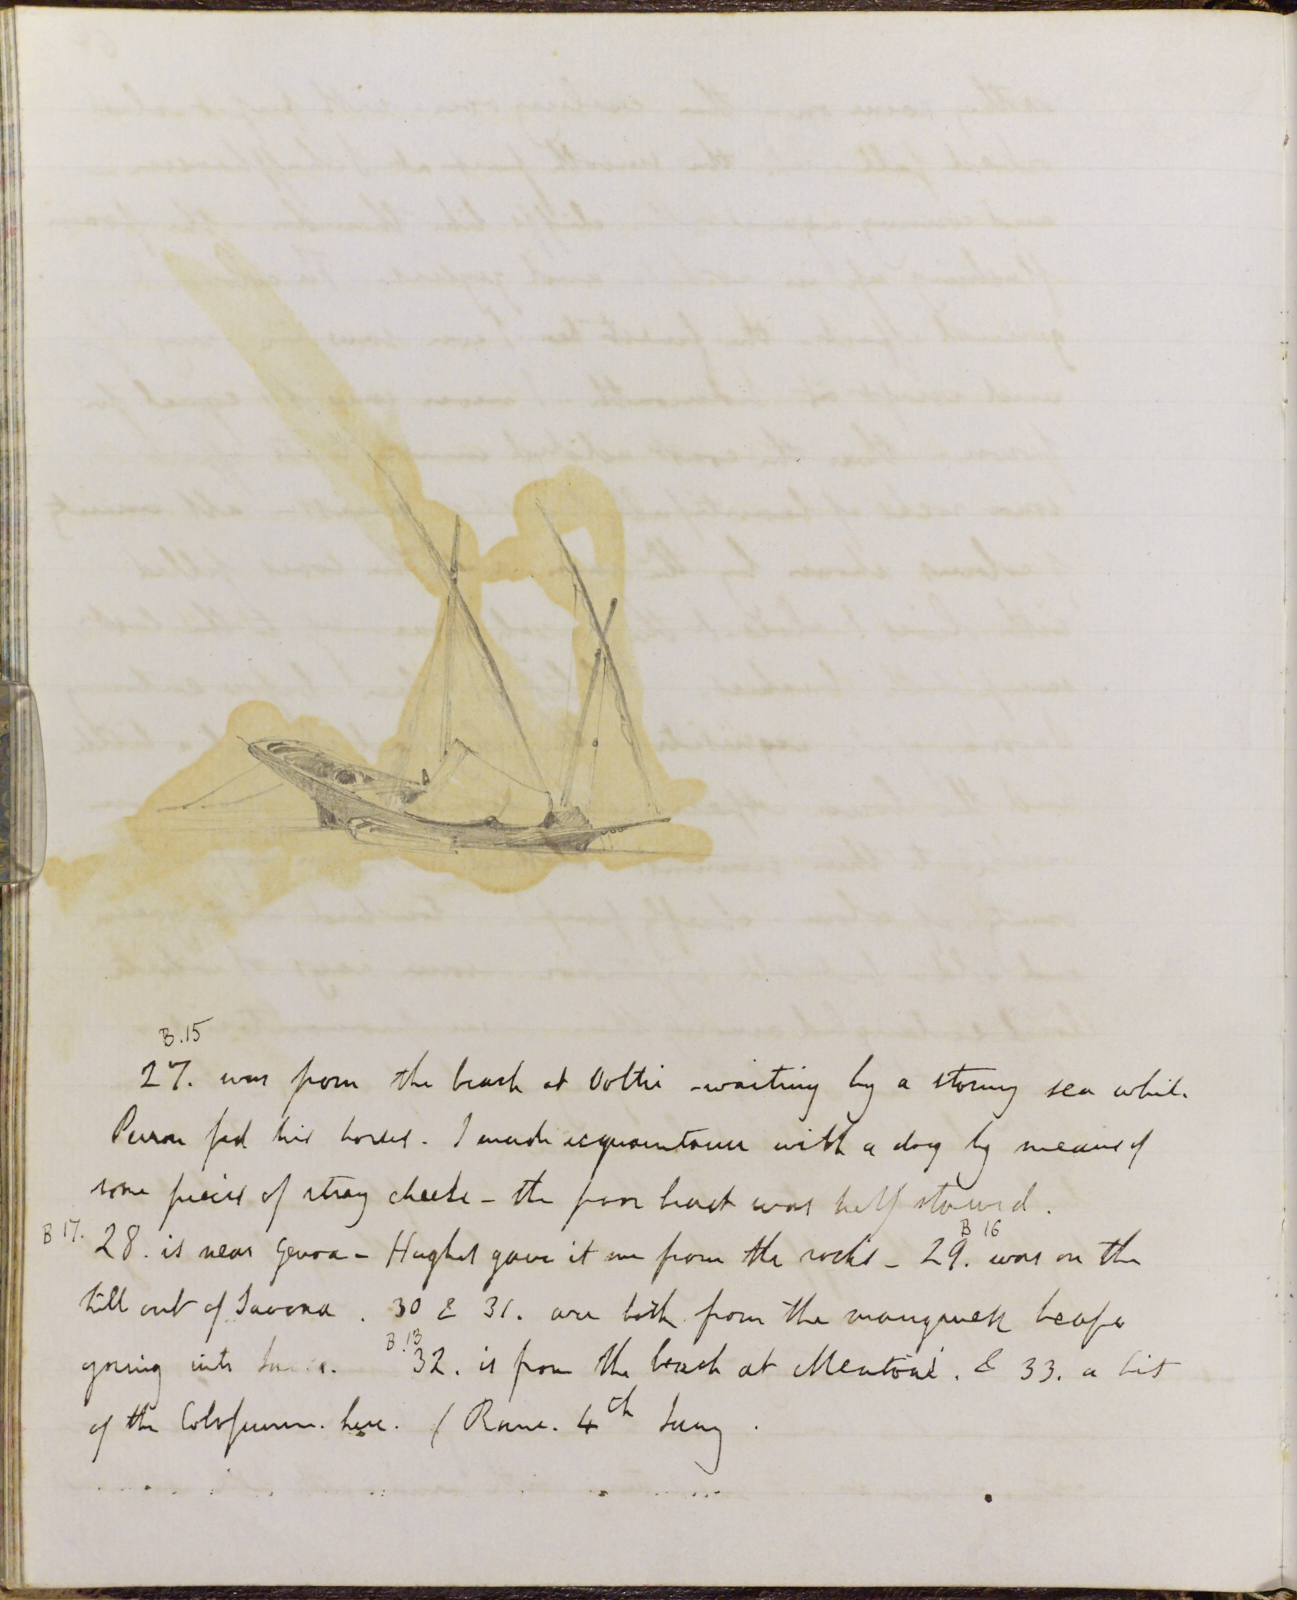 B.15
27. was from the beach at Voltri - waiting by a stormy sea while
fed his horses. I made acquaintance with a dog by means of
some pieces of stray cheese - the poor beast was half starved.
B 17. 28. is near Genoa - Hughes gave it me from the rocks - 29. B 16 was on the
hill out of Savona. 30 & 31. are both from the
going into B.13 32. is from the beach at Mentone. & 33. a bit
of the Colosseum. here. (Rome. 4th